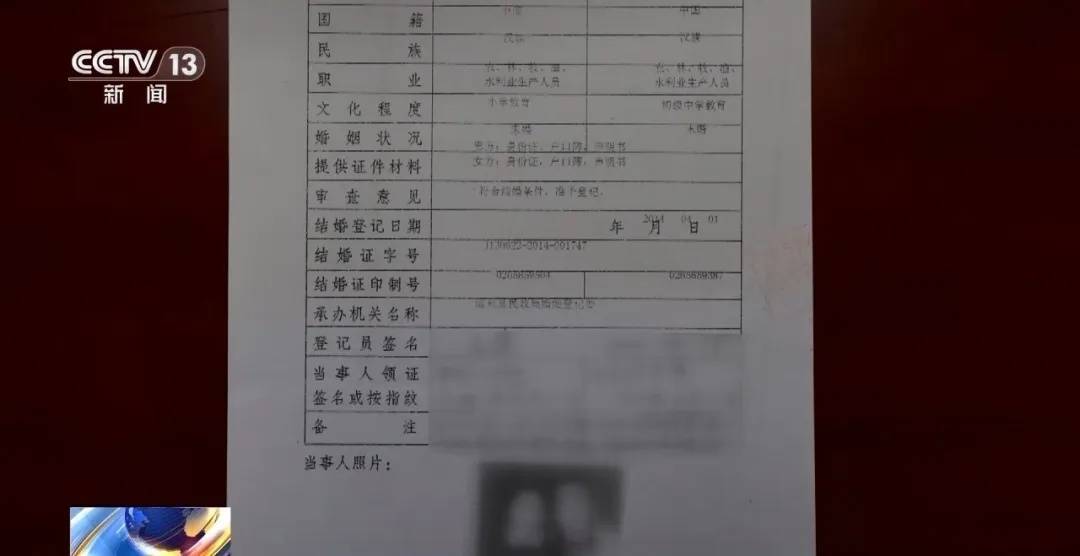 CCTV 13
新闻
国籍 中国
民族 汉族 汉族
职业 农、林、牧、渔、水利业生产人员 农、林、牧、渔、水利业生产人员
文化程度 小学教育 初级中学教育
婚姻状况 未婚 未婚
提供证件材料 男方：身份证，户口簿，声明书
女方：身份证，户口簿，声明书
审查意见 符合结婚条件，准予登记。
结婚登记日期 2014年04月01日
结婚证字号 J130622-2014-001747
结婚证印制号
承办机关名称
登记员签名
当事人领证
签名或按指纹
备注
当事人照片：